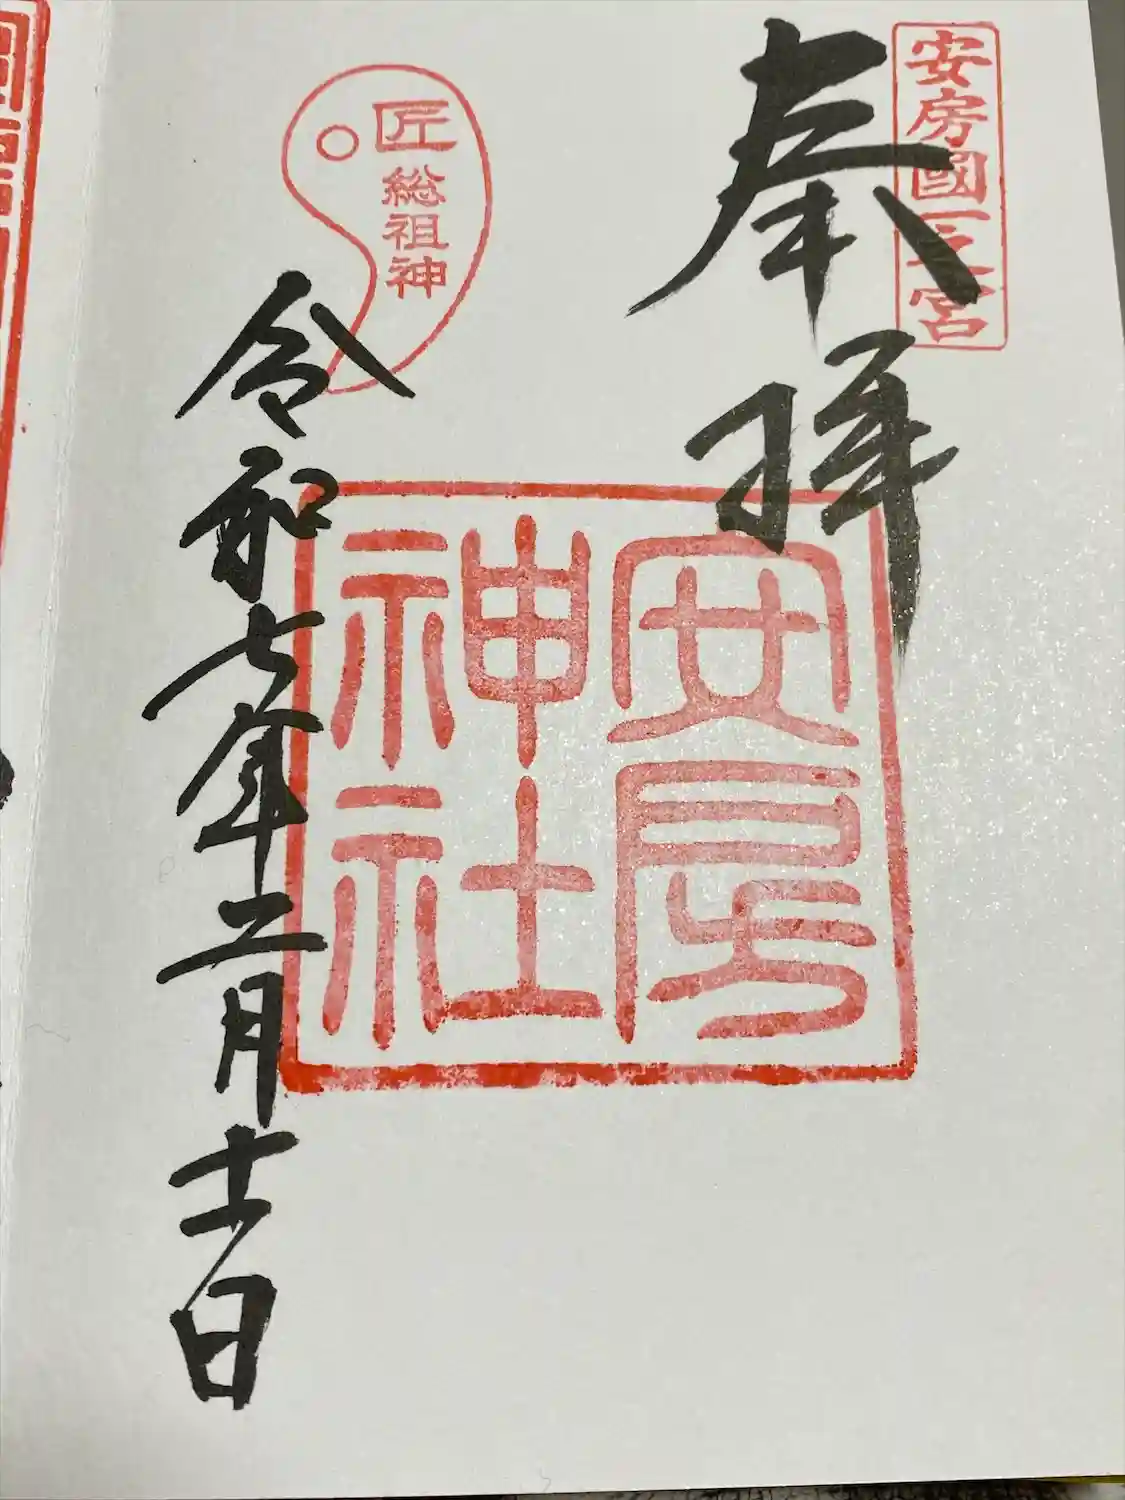 安房國一之宮
奉拝
安房
神社
匠総祖神
令和七年二月十一日